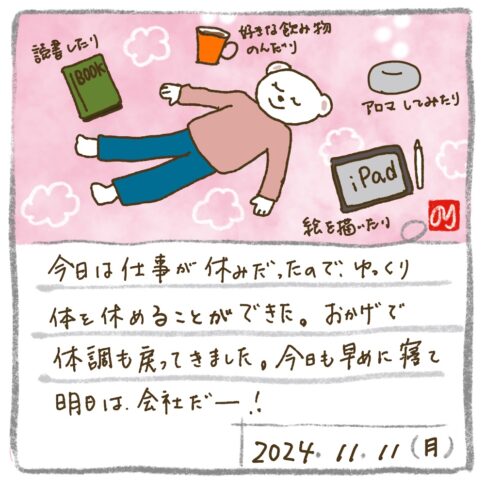 好きな飲み物
のんだり
読書したり
BOOK
アロマ してみたり
iPad
絵を描いたり
のり
今日は仕事が休みだったので、ゆっくり
体を休めることができた。おかげで
体調も戻ってきました。今日も早めに寝て
明日は、会社だー!!
2024. 11. 11 (月)